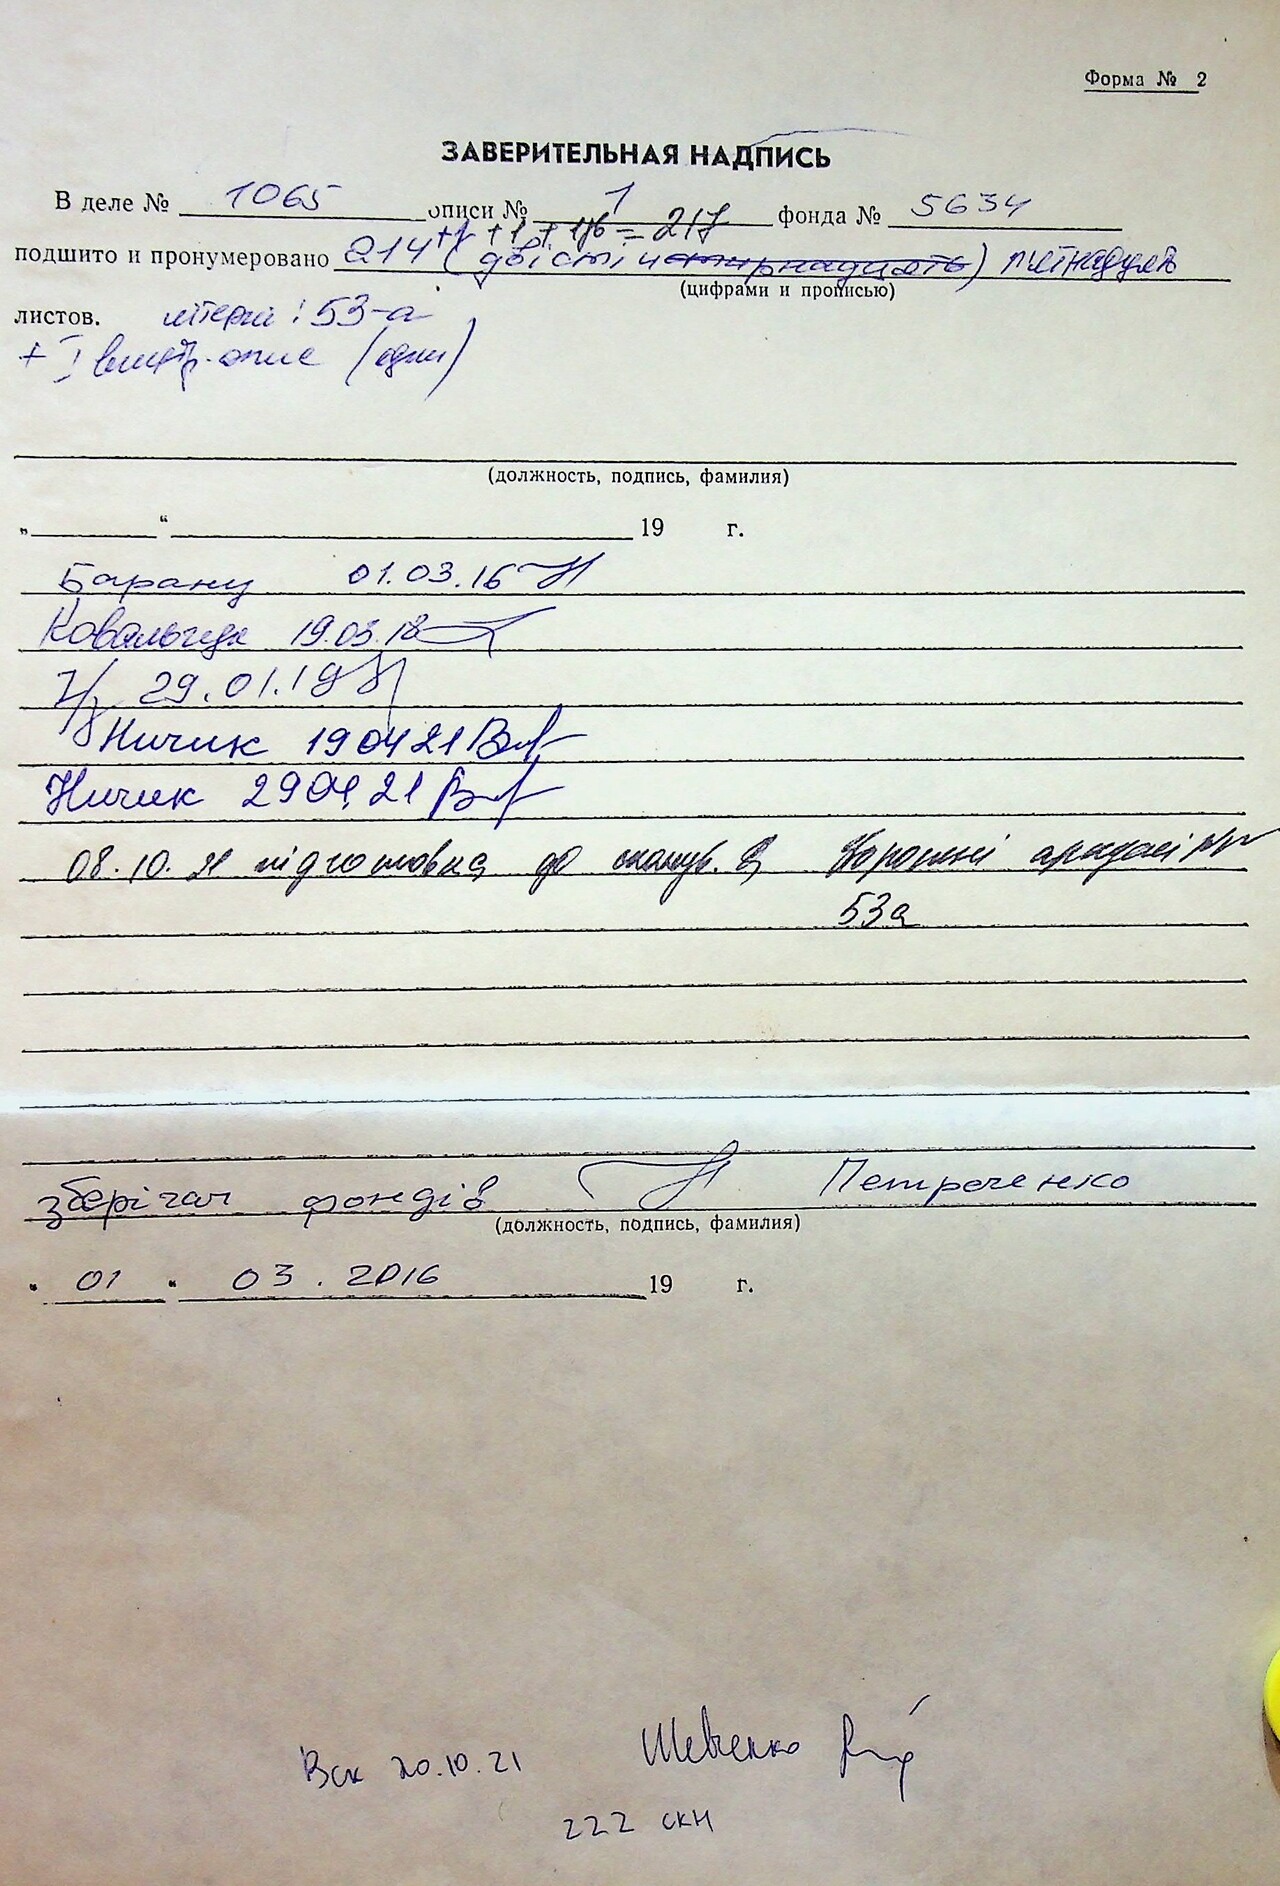 Форма № 2
ЗАВЕРИТЕЛЬНАЯ НАДПИСЬ
В деле № 1065 описи № 1 фонда № 5634
+1 +1 + 1/6 = 217
подшито и пронумеровано 214 (двісті чотирнадцять) п'ятнадцять
(цифрами и прописью)
листов. літери: 53-а
+ 1 внутр. опис (один)
(должность, подпись, фамилия)
„ “ 19 г.
Баранц 01.03.16
Ковальчук 19.03.18
29.01.19
Ничик 190421
Ничик 290421
08.10.21 підготовка до сканув.
53а
зберігач фондів Петреченко
(должность, подпись, фамилия)
" 01 " 03. 2016 19 г.
Вск 20.10.21 Шевченко
222 скн